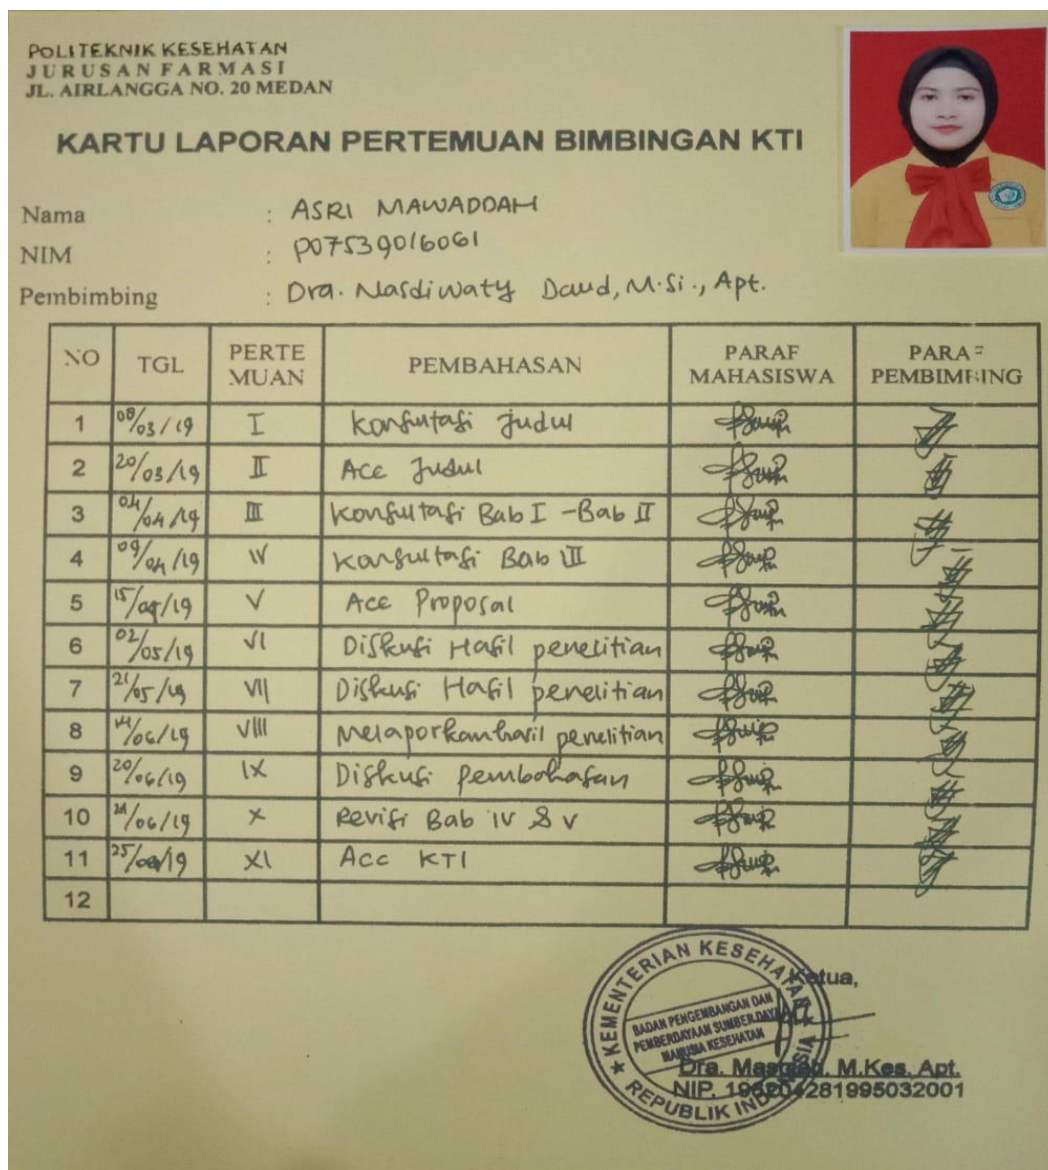 POLITEKNIK KESEHATAN
JURUSAN FARMASI
JL. AIRLANGGA NO. 20 MEDAN
KARTU LAPORAN PERTEMUAN BIMBINGAN KTI
Nama : ASRI MAWADDAH
NIM : P07539016061
Pembimbing : Dra. Masdiwaty Daud, M.Si., Apt.
NO TGL PERTE MUAN PEMBAHASAN PARAF MAHASISWA PARAF PEMBIMBING
1 08/03/19 I Konsultasi Judul
2 20/03/19 II Acc Judul
3 04/04/19 III Konsultasi Bab I - Bab II
4 09/04/19 IV Konsultasi Bab III
5 15/04/19 V Acc Proposal
6 02/05/19 VI Diskusi Hasil penelitian
7 21/05/19 VII Diskusi Hasil penelitian
8 14/06/19 VIII Melaporkan hasil penelitian
9 20/06/19 IX Diskusi Pembahasan
10 /06/19 X Revisi Bab IV & V
11 25/ /19 XI Acc KTI
12
Ketua,
KEMENTERIAN KESEHATAN
REPUBLIK INDONESIA
BADAN PENGEMBANGAN DAN
PEMBERDAYAAN SUMBER DAYA
MANUSIA KESEHATAN
Dra. Masniah, M.Kes, Apt.
NIP. 196204281995032001